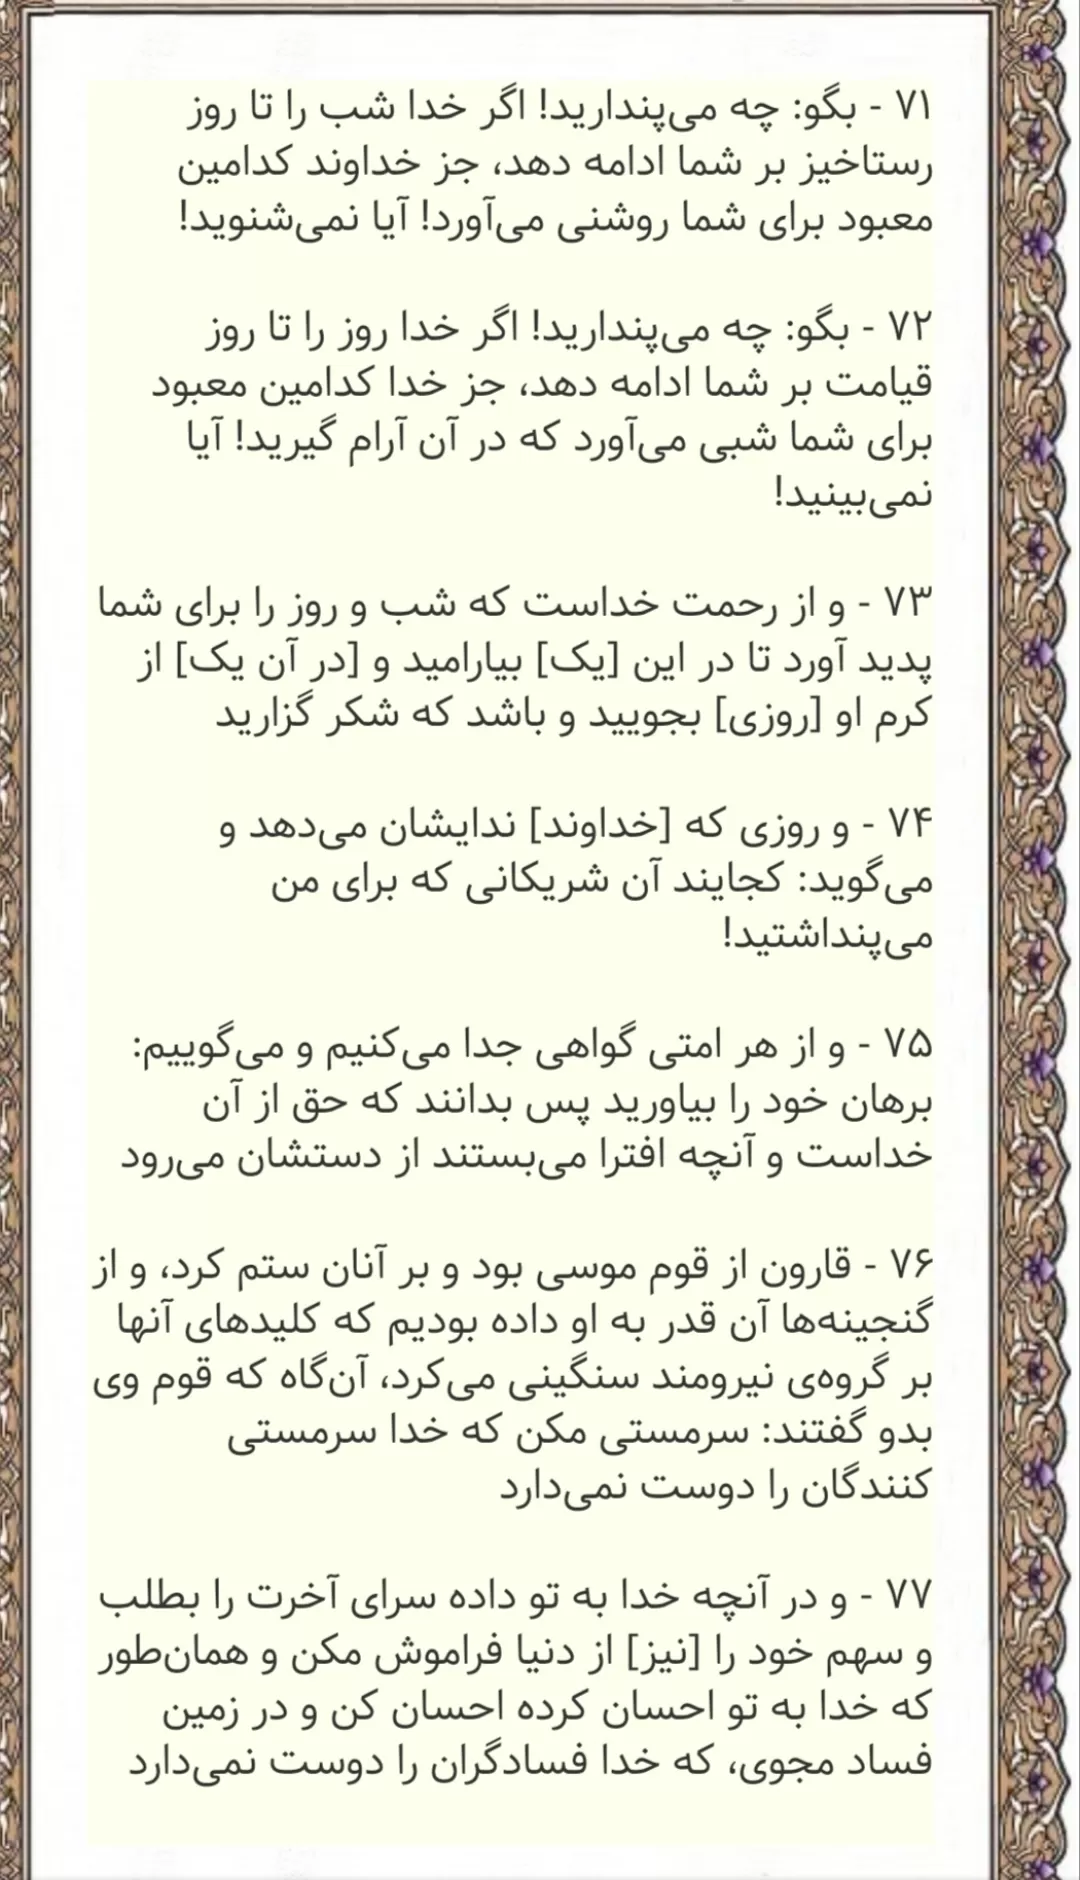 ۷۱ - بگو: چه می‌پندارید! اگر خدا شب را تا روز
رستاخیز بر شما ادامه دهد، جز خداوند کدامین
معبود برای شما روشنی می‌آورد! آیا نمی‌شنوید!
۷۲ - بگو: چه می‌پندارید! اگر خدا روز را تا روز
قیامت بر شما ادامه دهد، جز خدا کدامین معبود
برای شما شبی می‌آورد که در آن آرام گیرید! آیا
نمی‌بینید!
۷۳ - و از رحمت خداست که شب و روز را برای شما
پدید آورد تا در این [یک] بیارامید و [در آن یک] از
کرم او [روزی] بجویید و باشد که شکر گزارید
۷۴ - و روزی که [خداوند] ندایشان می‌دهد و
می‌گوید: کجایند آن شریکانی که برای من
می‌پنداشتید!
۷۵ - و از هر امتی گواهی جدا می‌کنیم و می‌گوییم:
برهان خود را بیاورید پس بدانند که حق از آن
خداست و آنچه افترا می‌بستند از دستشان می‌رود
۷۶ - قارون از قوم موسی بود و بر آنان ستم کرد، و از
گنجینه‌ها آن قدر به او داده بودیم که کلیدهای آنها
بر گروه‌ی نیرومند سنگینی می‌کرد، آن‌گاه که قوم وی
بدو گفتند: سرمستی مکن که خدا سرمستی
کنندگان را دوست نمی‌دارد
۷۷ - و در آنچه خدا به تو داده سرای آخرت را بطلب
و سهم خود را [نیز] از دنیا فراموش مکن و همان‌طور
که خدا به تو احسان کرده احسان کن و در زمین
فساد مجوی، که خدا فسادگران را دوست نمی‌دارد